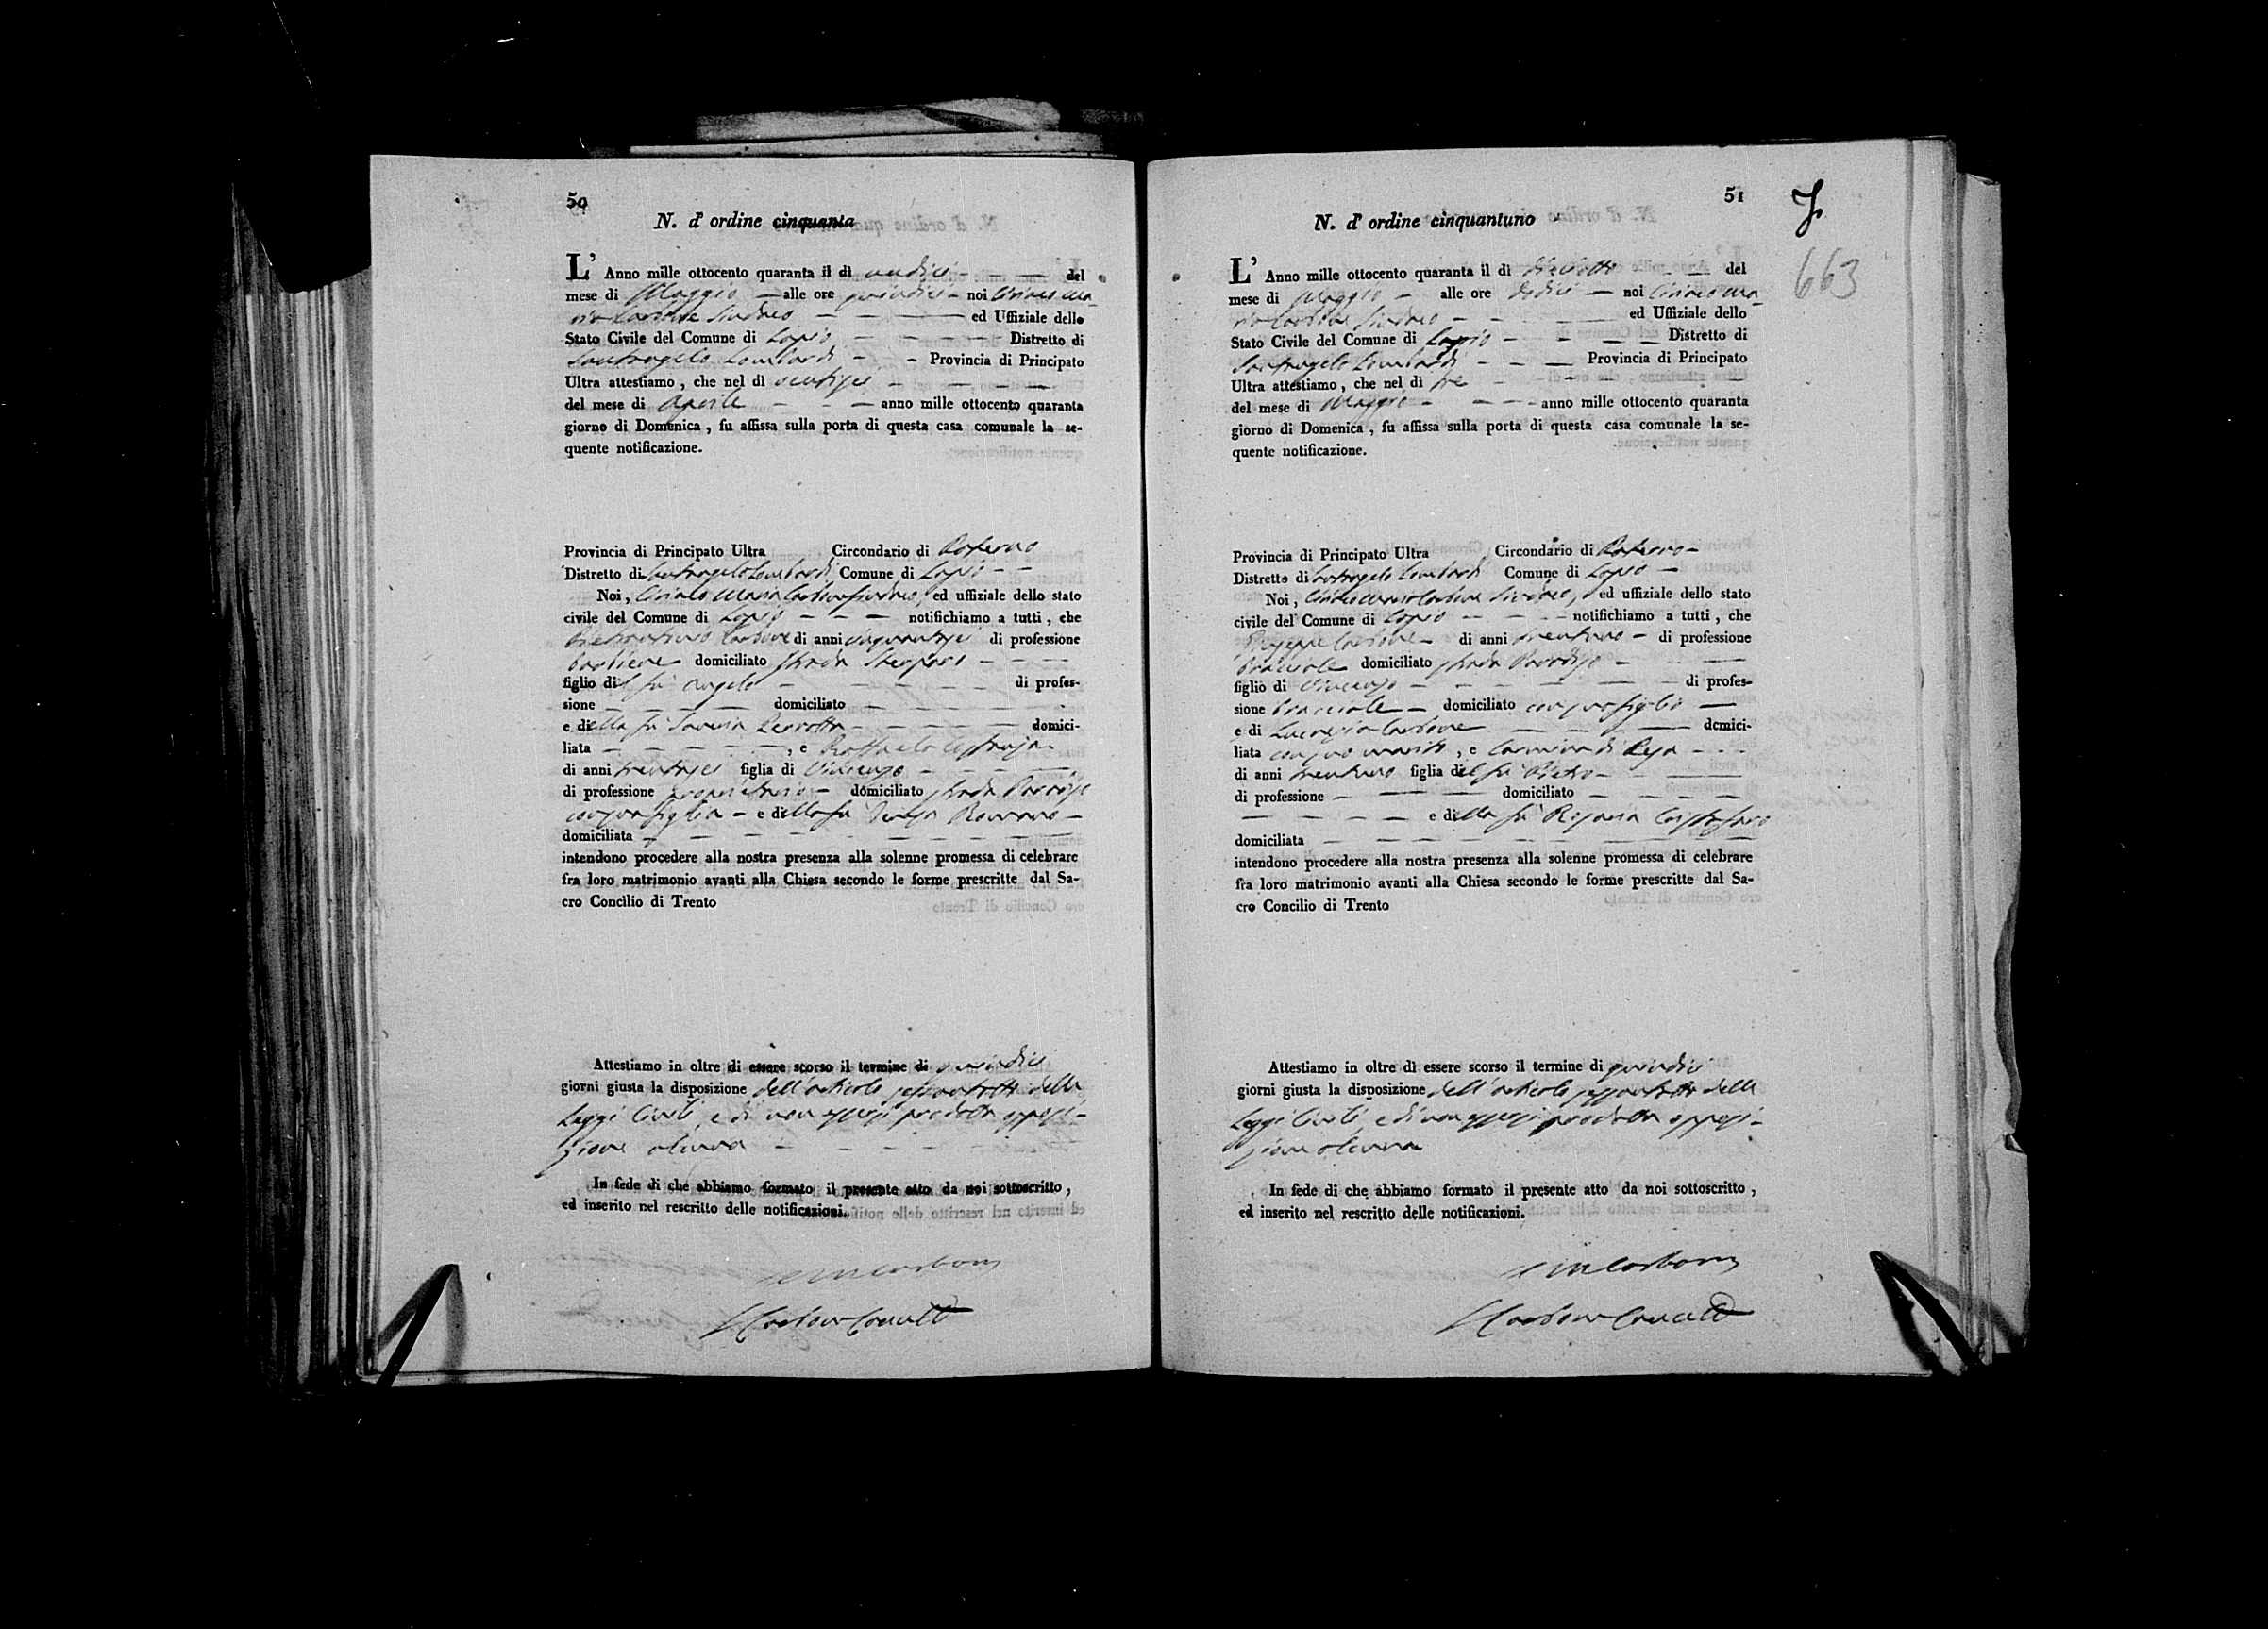 50
N. d' ordine cinquanta
L' Anno mille ottocento quaranta il di undici del
mese di Maggio alle ore quindici noi Ciriaco Ma-
ria Carbone Sindaco ed Uffiziale dello
Stato Civile del Comune di Lapio Distretto di
Santangelo Lombardi Provincia di Principato
Ultra attestiamo, che nel di ventisei
del mese di Aprile anno mille ottocento quaranta
giorno di Domenica, fu affissa sulla porta di questa casa comunale la se-
quente notificazione.
Provincia di Principato Ultra Circondario di Paterno
Distretto di Santangelo Lombardi Comune di Lapio
Noi, Ciriaco Maria Carbone Sindaco, ed uffiziale dello stato
civile del Comune di Lapio notifichiamo a tutti, che
Carbone di anni cinquantasei di professione
barbiere domiciliato strada
figlio del fu Angelo di profes-
sione domiciliato
e della fu Saveria Perrotta domici-
liata , e Raffaela
di anni trentasei figlia di Vincenzo
di professione proprietario domiciliato strada Paradiso
con sua figlia e della fu Teresa Romano
domiciliata
intendono procedere alla nostra presenza alla solenne promessa di celebrare
fra loro matrimonio avanti alla Chiesa secondo le forme prescritte dal Sa-
cro Concilio di Trento
Attestiamo in oltre di essere scorso il termine di quindici
giorni giusta la disposizione dell'articolo sessantotto delle
Leggi Civili, e di non essersi prodotta opposi-
zione alcuna
In fede di che abbiamo formato il presente atto da noi sottoscritto,
ed inserito nel rescritto delle notificazioni.
C M Carbone
Carbone Cancell
51
663
N. d' ordine cinquantuno
L' Anno mille ottocento quaranta il di diciotto del
mese di Maggio alle ore dodici noi Ciriaco Ma-
ria Carbone Sindaco ed Uffiziale dello
Stato Civile del Comune di Lapio Distretto di
Santangelo Lombardi Provincia di Principato
Ultra attestiamo, che nel di tre
del mese di Maggio anno mille ottocento quaranta
giorno di Domenica, fu affissa sulla porta di questa casa comunale la se-
quente notificazione.
Provincia di Principato Ultra Circondario di Paterno
Distretto di Santangelo Lombardi Comune di Lapio
Noi, Ciriaco Maria Carbone Sindaco, ed uffiziale dello stato
civile del Comune di Lapio notifichiamo a tutti, che
Giuseppe Carbone di anni trentuno di professione
bracciale domiciliato strada Paradiso
figlio di Vincenzo di profes-
sione bracciale domiciliato con suo figlio
e di Lucrezia Carbone domici-
liata con suo marito, e Carmina di Resa
di anni trentuno figlia del fu Pietro
di professione domiciliato
e della fu Rosaria
domiciliata
intendono procedere alla nostra presenza alla solenne promessa di celebrare
fra loro matrimonio avanti alla Chiesa secondo le forme prescritte dal Sa-
cro Concilio di Trento
Attestiamo in oltre di essere scorso il termine di quindici
giorni giusta la disposizione dell'articolo sessantotto delle
Leggi Civili, e di non essersi prodotta opposi-
zione alcuna
In fede di che abbiamo formato il presente atto da noi sottoscritto,
ed inserito nel rescritto delle notificazioni.
C M Carbone
Carbone Cancell